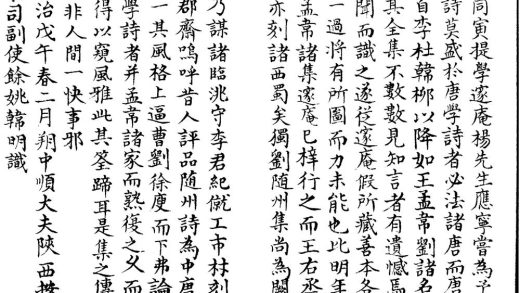 同寅提學邃庵楊先生應寧嘗為予
詩莫盛於唐學詩者必法諸唐而唐
自李杜韓柳以降如王孟常劉諸名
其全集不數數見知言者有遺憾焉
聞而識之遂從邃庵假所藏善本各
一過將有所圖而力未能也比明年
孟常諸集邃庵已梓行之而王右丞
亦刻諸西蜀矣獨劉随州集尚為闕
乃謀諸臨洮守李君紀僦工市材刻
郡齋嗚呼昔人評品随州詩為中唐
一其風格上逼曹劉徐庾而下弗論
學詩者并孟常諸家而熟復之久而
得以窺風雅此其筌蹄耳是集之傳
非人間一快事邪
治戊午春二月朔中順大夫陝西按
司副使餘姚韓明識